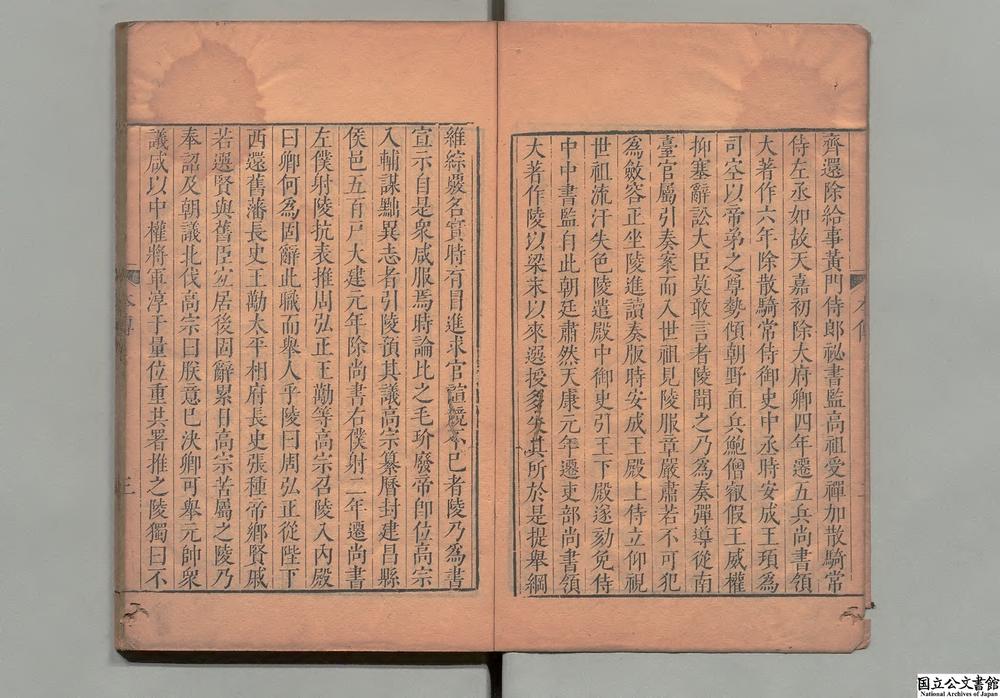 齊還除給事黃門侍郎祕書監高祖受禪加散騎常
侍左丞如故天嘉初除大府卿四年遷五兵尚書領
大著作六年除散騎常侍御史中丞時安成王頊為
司空以帝弟之尊勢傾朝野直兵鮑僧叡假王威權
抑塞辭訟大臣莫敢言者陵聞之乃為奏彈導從南
臺官屬引奏案而入世祖見陵服章嚴肅若不可犯
為斂容正坐陵進讀奏版時安成王殿上侍立仰視
世祖流汗失色陵遣殿中御史引王下殿遂劾免侍
中中書監自此朝廷肅然天康元年遷吏部尚書領
大著作陵以梁末以來選授多失其所於是提舉綱
維綜覈名實時有冒進求官諠競不已者陵乃為書
宣示自是衆咸服焉時論比之毛玠廢帝即位高宗
入輔謀黜異志者引陵預其議高宗纂曆封建昌縣
侯邑五百戶大建元年除尚書右僕射二年遷尚書
左僕射陵抗表推周弘正王勱等高宗召陵入內殿
曰卿何為固辭此職而舉人乎陵曰周弘正從陛下
西還舊藩長史王勱太平相府長史張種帝鄉賢戚
若選賢與舊臣宜居後固辭累日高宗苦屬之陵乃
奉詔及朝議北伐高宗曰朕意已決卿可舉元帥衆
議咸以中權將軍淳于量位重共署推之陵獨曰不
本傳
三
国立公文書館
National Archives of Japan